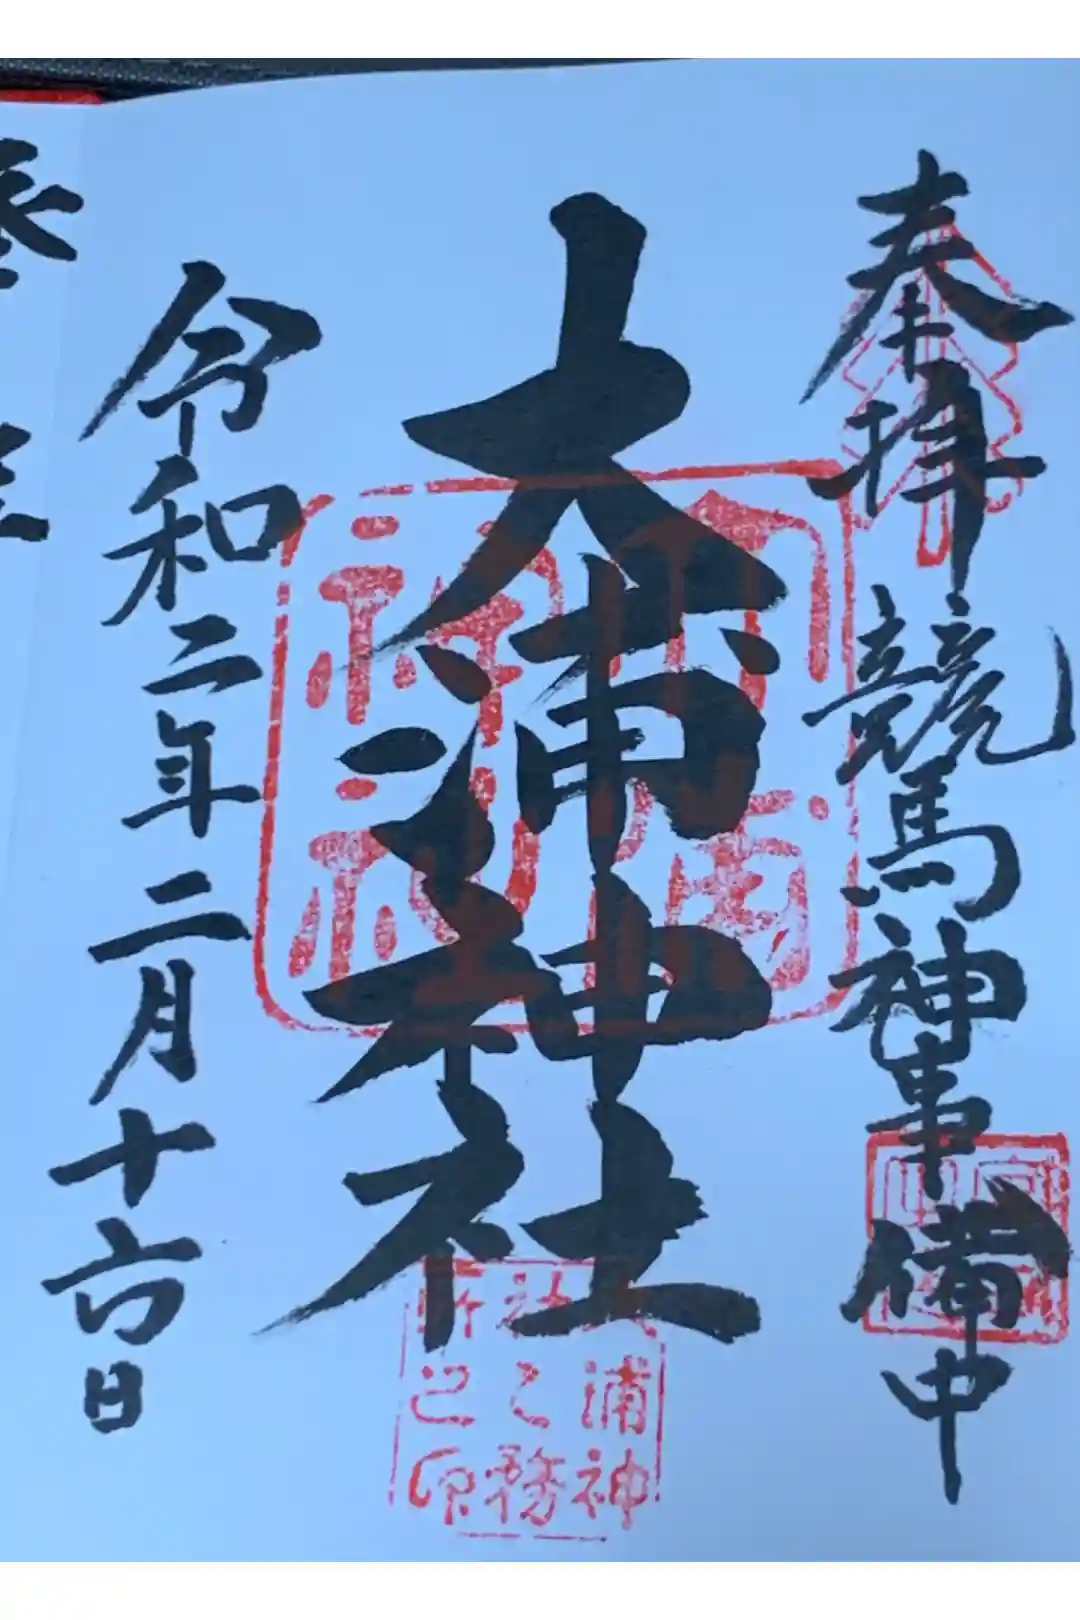 奉拝 競馬神事 備中
大浦神社
令和二年二月十六日
浦神
之務